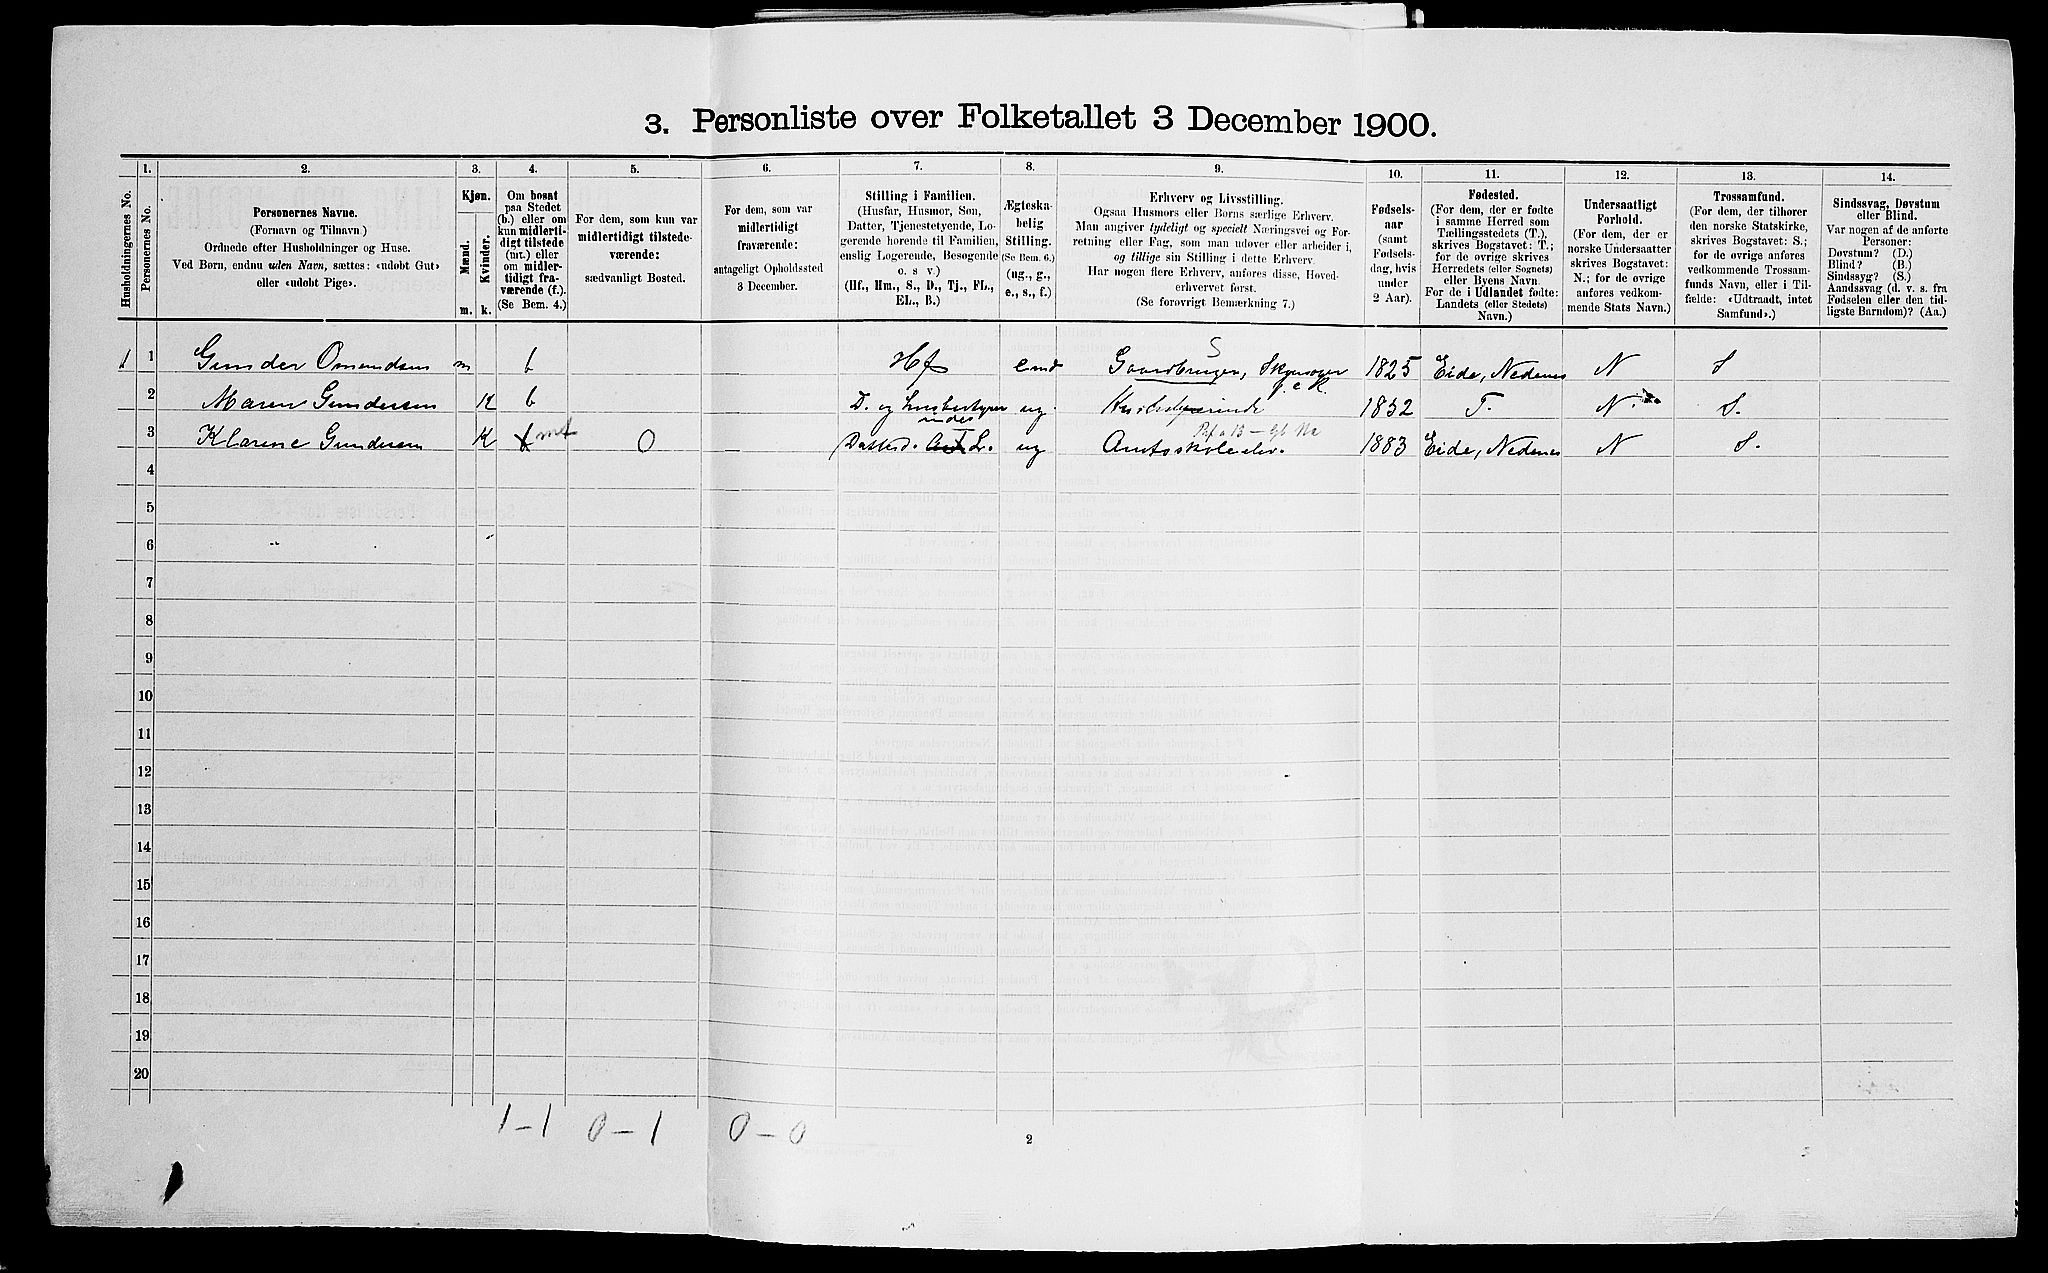 3. Personliste over Folketallet 3 December 1900.
Husholdningernes No.
1.
Personernes No.
2.
Personernes Navne.
(Fornavn og Tilnavn.)
Ordnede efter Husholdninger og Huse.
Ved Børn, endnu uden Navn, sættes: «udøbt Gut»
eller «udøbt Pige».
3.
Kjøn.
Mænd.
Kvinder.
m.
k.
4.
Om bosat
paa Stedet
(b.) eller om
kun midlerti-
digt tilstede
(mt.) eller
om midler-
tidigt fra-
værende (f.).
(Se Bem. 4.)
5.
For dem, som kun var
midlertidigt tilstede-
værende:
sædvanligt Bosted.
6.
For dem, som var
midlertidigt
fraværende:
antageligt Opholdssted
3 December.
7.
Stilling i Familien.
(Husfar, Husmor, Søn,
Datter, Tjenestetyende, Lo-
gerende hørende til Familien,
enslig Logerende, Besøgende
o. s v.)
(Hf., Hm., S., D., Tj., FL.,
EL., B.)
8.
Ægteska-
belig
Stilling.
(Se Bem. 6.)
(ug., g.,
e., s., f.)
9.
Erhverv og Livsstilling.
Ogsaa Husmors eller Børns særlige Erhverv.
Man angiver tydeligt og specielt Næringsvei og For-
retning eller Fag, som man udøver eller arbeider i,
og tillige sin Stilling i dette Erhverv.
Har nogen flere Erhverv, anføres disse, Hoved-
erhvervet først.
(Se forøvrigt Bemærkning 7.)
10.
Fødsels-
aar
(samt
Fødsels-
dag, hvis
under
2 Aar).
11.
Fødested.
(For dem, der er fødte
i samme Herred som
Tællingsstedets (T.),
skrives Bogstavet: T.;
for de øvrige skrives
Herredets (eller Sognets)
eller Byens Navn.
For de i Udlandet fødte:
Landets (eller Stedets)
Navn.)
12.
Undersaatligt
Forhold.
(For dem, der er
norske Undersaatter
skrives Bogstavet:
N.; for de øvrige
anføres vedkom-
mende Stats Navn.)
13.
Trossamfund.
(For dem, der tilhører
den norske Statskirke,
skrives Bogstavet: S.;
for de øvrige anføres
vedkommende Trossam-
funds Navn, eller i Til-
fælde: «Udtraadt, intet
Samfund».)
14.
Sindssvag, Døvstum
eller Blind.
Var nogen af de anførte
Personer:
Døvstum? (D.)
Blind? (B.)
Sindssyg? (S.)
Aandssvag (d. v. s. fra
Fødselen eller den tid-
ligste Barndom)? (Aa.)
1 1 Gunder Omundsen m b Hf emd Gaardbruger, 1825 Eide, Nedenes N S
2 Maren Gundersen K b D. og ug. 1852 T. N. S.
3 Klarine Gundersen K mt O Datterd. ug Amtsskoleelev. 1883 Eide, Nedenes N S.
4
5
6
7
8
9
10
11
12
13
14
15
16
17
18
19
20
1-1 0-1 0-0
2